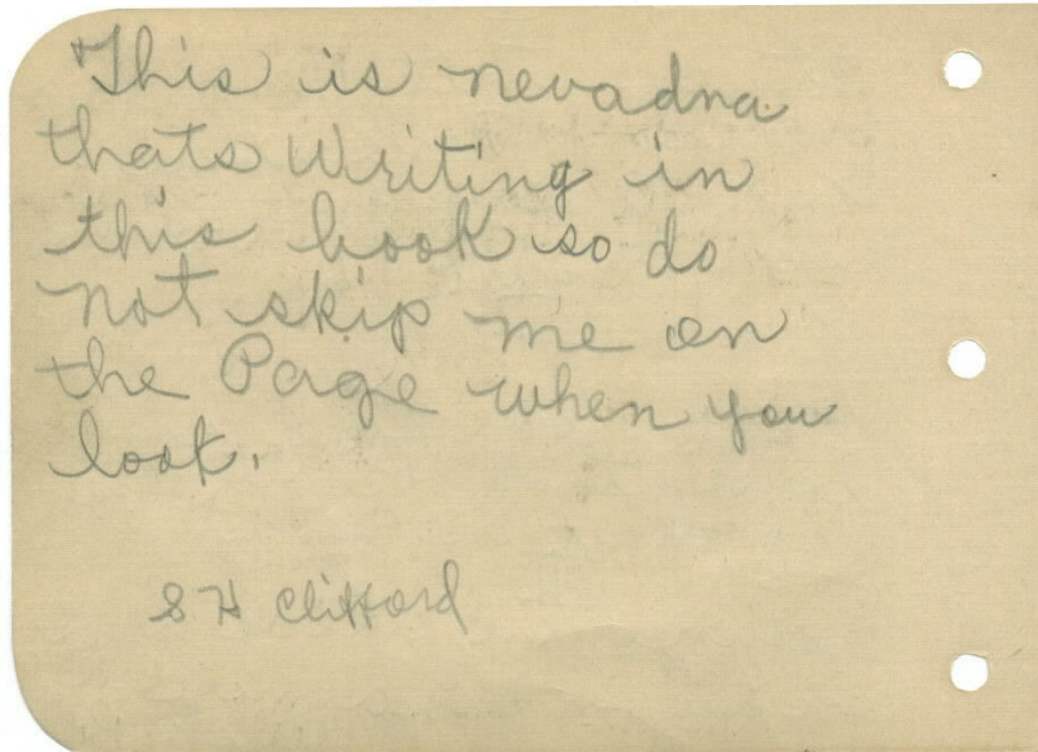 This is nevadna
thats Writing in
this book so do
not skip me on
the Page when you
look.
S H Clifford